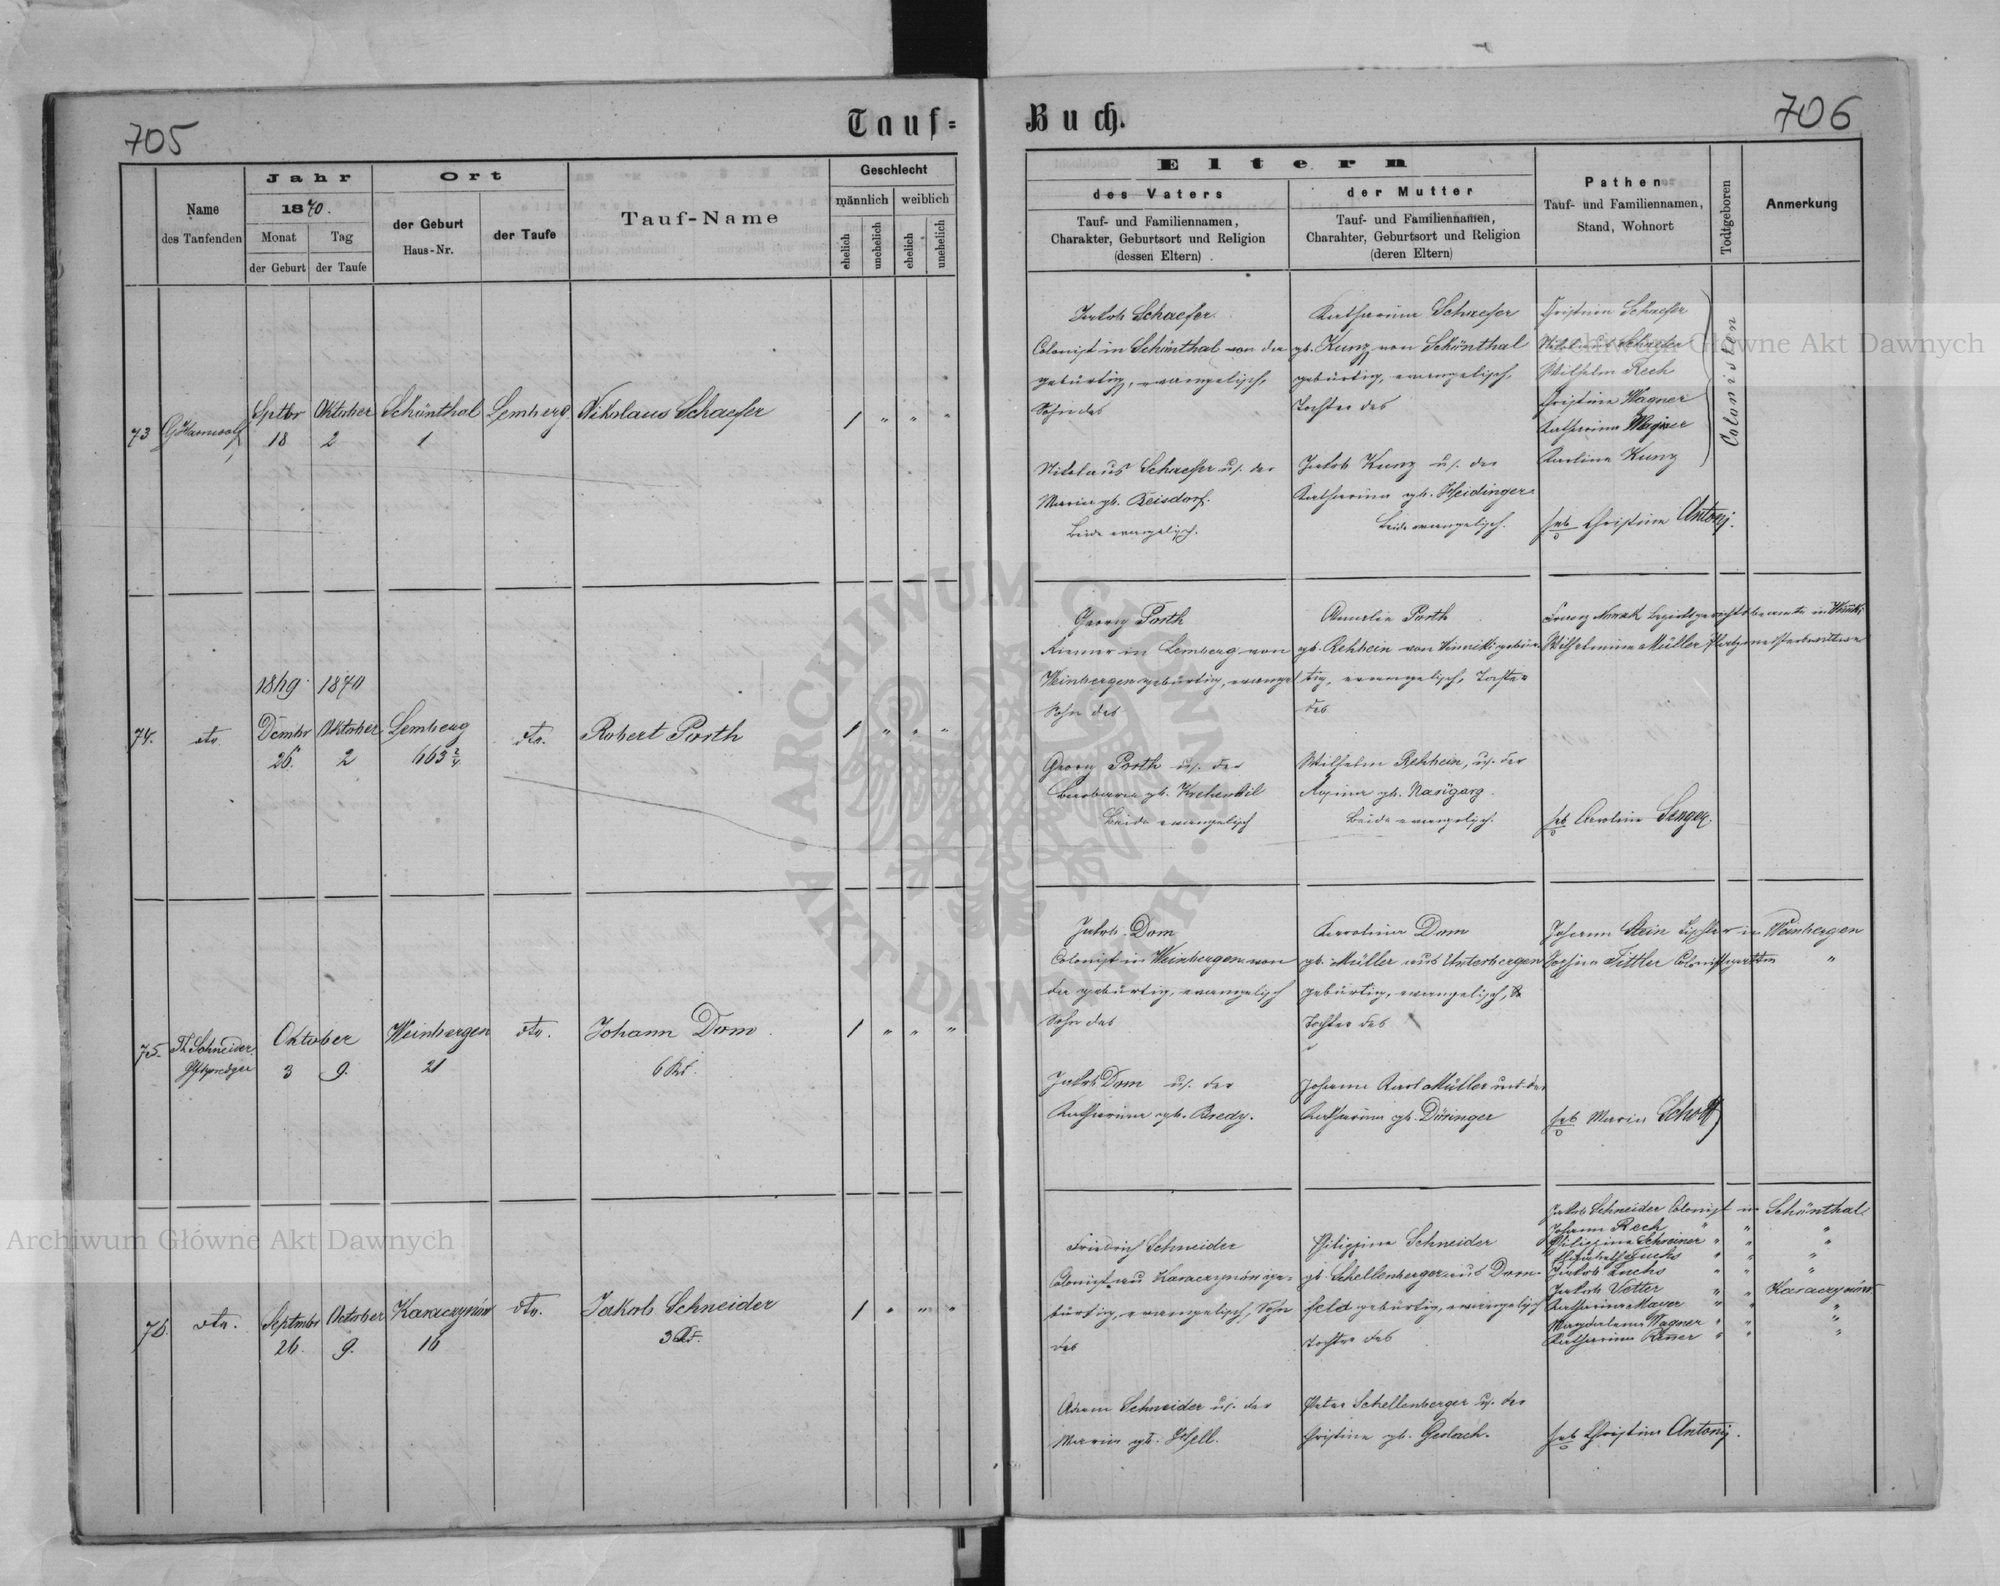 705
Tauf=
Name
des Taufenden
Jahr
1870.
Monat
der Geburt
Tag
der Taufe
Ort
der Geburt
Haus-Nr.
der Taufe
Tauf-Name
Geschlecht
männlich
weiblich
ehelich
unehelich
ehelich
unehelich
73
Sptbr
18
Oktober
2
Schönthal
1
Lemberg
Nikolaus Schaefer
1 " " "
74.
dto.
1869.
Dembr
26.
1870
Oktober
2
Lemberg
663 2/4
dto.
Robert Porth
1 " " "
75.
Th. Schneider
Oktober
3
9.
Weinbergen
21
dto.
Johann Dom
6 Kd.
1 " " "
76.
dto.
Septmbr
26.
October
9.
Karaczynów
16
dto.
Jakob Schneider
3 Kd.
1 " " "
Buch.
706
Eltern
des Vaters
Tauf- und Familiennamen,
Charakter, Geburtsort und Religion
(dessen Eltern)
der Mutter
Tauf- und Familiennamen,
Charahter, Geburtsort und Religion
(deren Eltern)
Pathen
Tauf- und Familiennamen,
Stand, Wohnort
Todtgeboren
Anmerkung
Jakob Schaefer
Colonist in Schönthal von da
gebürtig, evangelisch,
Sohn des
Nikolaus Schaefer u. der
Maria gb. Beisdorf.
Beide evangelisch.
Katharina Schaefer
gb. Kunz von Schönthal
gebürtig, evangelisch,
Tochter des
Jakob Kunz u. der
Katharina gb. Heidinger
Beide evangelisch.
Christina Schaefer
Nikolaus Schaefer
Wilhelm Rech
Christina Wagner
Katharina Wagner
Karolina Kunz
Colonisten
Heb Christina Antonj.
Georg Porth
in Lemberg von
Weinbergen gebürtig, evangel.
Sohn des
Georg Porth u. der
Barbara gb. Krehenbil
Beide evangelisch
Amalia Porth
gb. Rehbein von Winniki gebür-
tig, evangelisch, Tochter
des
Wilhelm Rehbein, u. der
Regina gb.
Beide evangelisch.
Franz Nowak Bezirksgerichtsbeamte in Winniki
Wilhelmina Müller
Heb Carolina Senger.
Jakob Dom
Colonist in Weinbergen von
da gebürtig, evangelisch
Sohn des
Jakob Dom u. der
Katharina gb. Bredy.
Karolina Dom
gb. Müller aus Unterbergen
gebürtig, evangelisch,
Tochter des
Johann Karl Müller und der
Katharina gb. Döringer
Johann Stein in Weinbergen
Tittler "
Heb Maria Schoff
Friedrich Schneider
Colonist aus Karaczynów ge-
bürtig, evangelisch, Sohn
des
Adam Schneider u. der
Maria gb. Hell.
Philippina Schneider
gb. Schellenberger aus Dorn-
feld gebürtig, evangelisch
Tochter des
Peter Schellenberger u. der
Christina gb. Gerlach.
Jakob Schneider Colonist in Schönthal
Johann Rech " " "
Philippina Schreiner " " "
Elisabetha Fuchs " " "
Jakob Fuchs " "
Jakob Vetter " " Karaczynów
Katharina Mayer " " "
Magdalena Wagner " " "
Katharina Rener " " "
Heb Christina Antonj.
Archiwum Główne Akt Dawnych
Archiwum Główne Akt Dawnych
ARCHIWUM GŁÓWNE AKT DAWNYCH